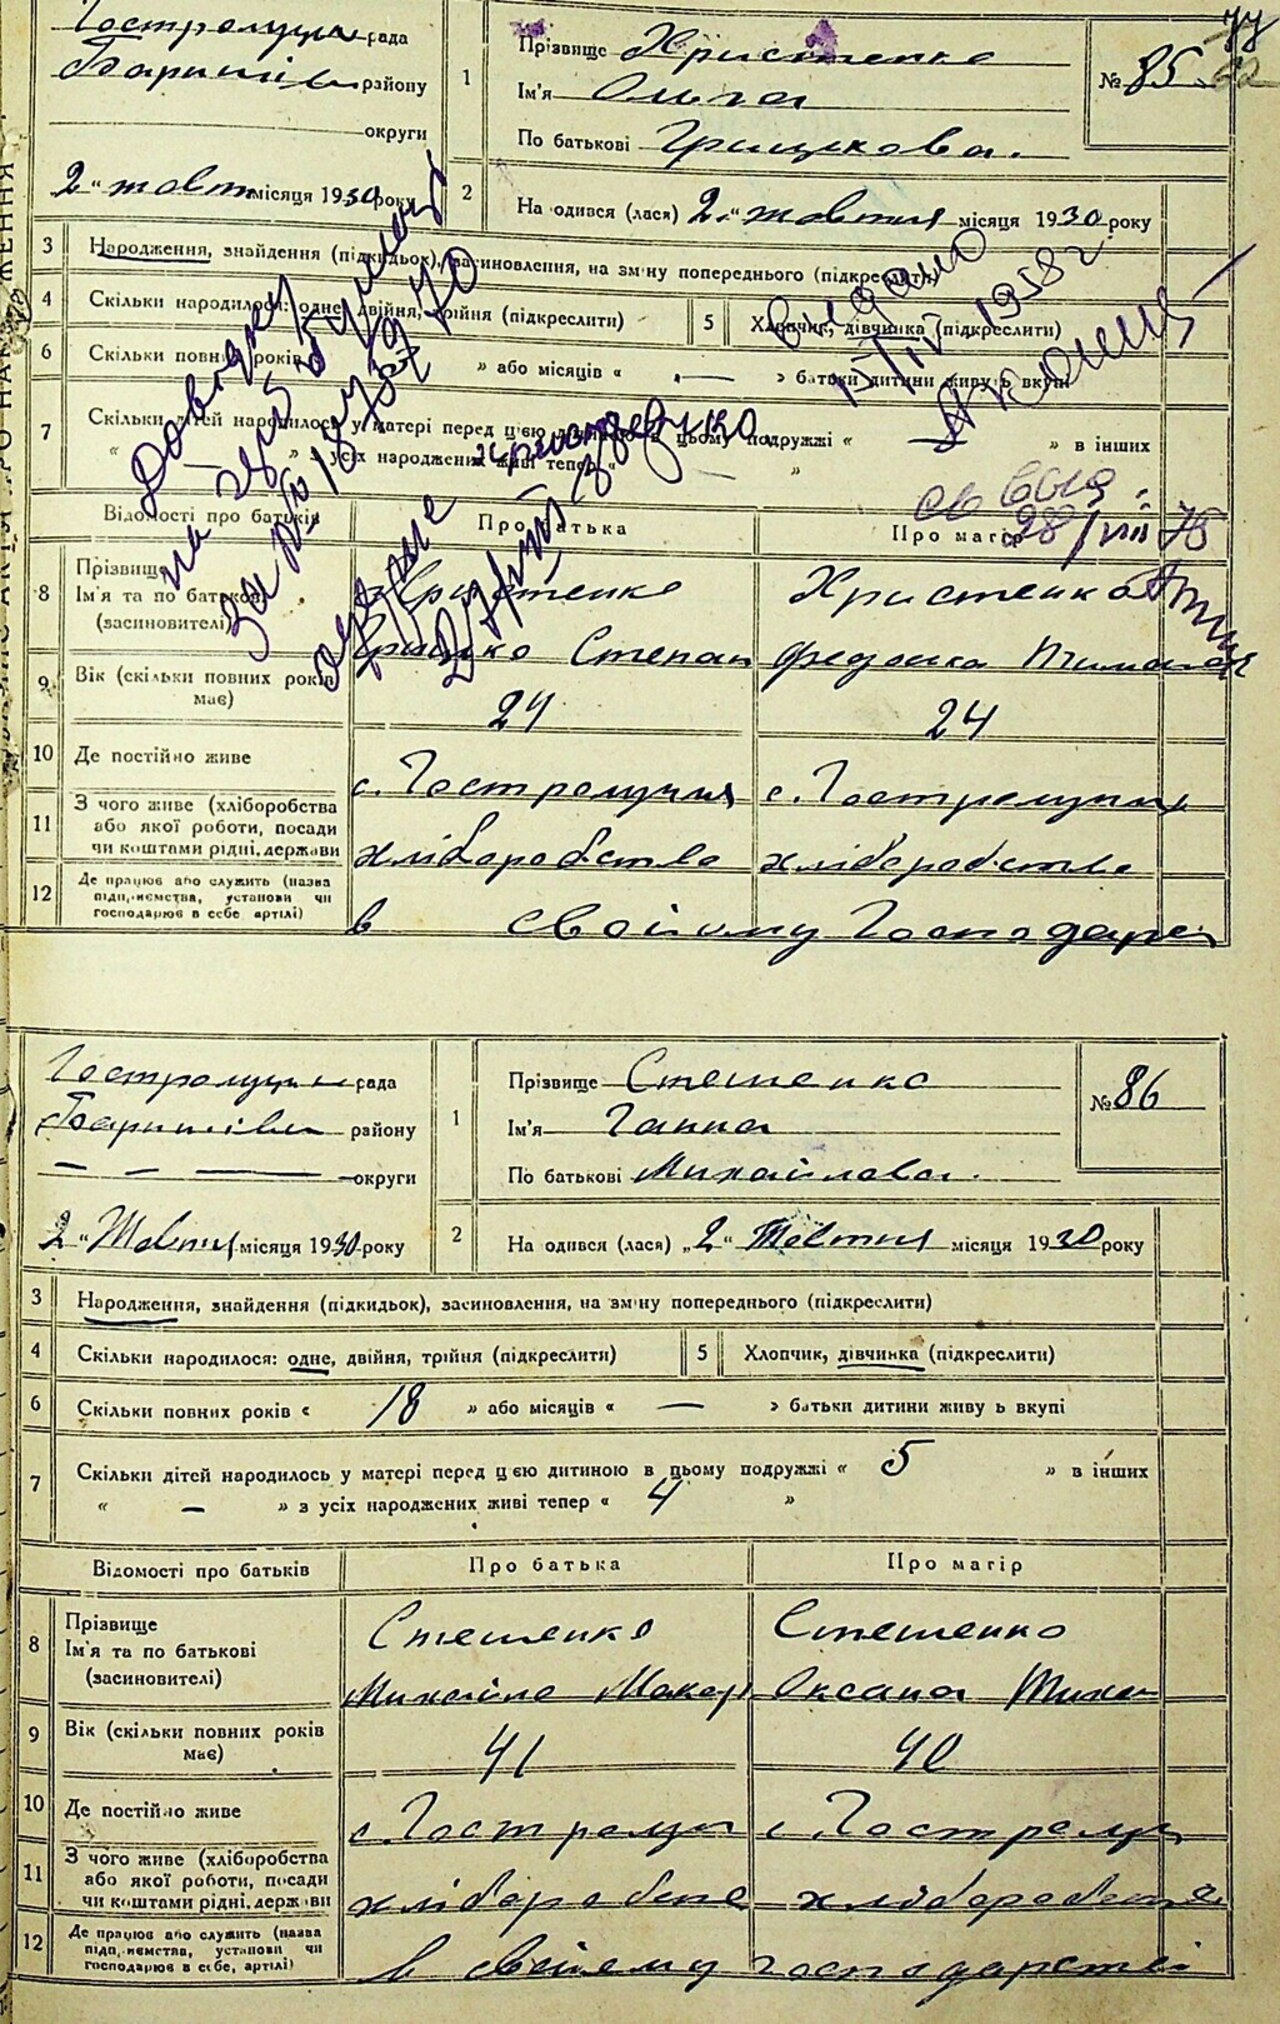 Гостролуцьк рада
Баришів району
округи
2 " жовтн місяця 1930 року
1
Прізвище Христенко
Ім'я Ольга
По батькові Грицькова.
№ 85
77
2
На одився (лася) 2 " жовтня місяця 1930 року
3 Народження, знайдення (підкидьок), засиновлення, на зміну попереднього (підкреслити)
4 Скільки народилося: одне, двійня, трійня (підкреслити)
5 Хлопчик, дівчинка (підкреслити)
6 Скільки повних років « » або місяців « — » батьки дитини живуть вкупі
7 Скільки дітей народилось у матері перед цією дитиною в цьому подружжі « — » в інших
« — » з усіх народжених живі тепер « — »
видано
1958 г
Довідку
28/VIII 75
Відомості про батьків Про батька Про матір
8 Прізвище
Ім'я та по батькові
(засиновителі)
Христенко Христенко
Грицько Степан Федоська
9 Вік (скільки повних років має) 24 24
10 Де постійно живе с. Гостролуччя с. Гостролуччя
11 З чого живе (хліборобства
або якої роботи, посади
чи коштами рідні, держави
хліборобство хліборобство
12 Де працює або служить (назва
підприємства, установи чи
господарює в себе артілі)
в своійому Господарс
Гостролуцьк рада
Баришівск району
— — — округи
2 " Жовтня місяця 1930 року
1
Прізвище Стешенко
Ім'я Ганна
По батькові Михайлова.
№ 86
2
На одився (лася) „ 2 " Жовтня місяця 1930 року
3 Народження, знайдення (підкидьок), засиновлення, на зміну попереднього (підкреслити)
4 Скільки народилося: одне, двійня, трійня (підкреслити)
5 Хлопчик, дівчинка (підкреслити)
6 Скільки повних років « 18 » або місяців « — » батьки дитини живуть вкупі
7 Скільки дітей народилось у матері перед цією дитиною в цьому подружжі « 5 » в інших
« — » з усіх народжених живі тепер « 4 »
Відомості про батьків Про батька Про матір
8 Прізвище
Ім'я та по батькові
(засиновителі)
Стешенко Стешенко
Михайло Макар Оксана
9 Вік (скільки повних років має) 41 40
10 Де постійно живе с. Гостролуч с. Гостролуч
11 З чого живе (хліборобства
або якої роботи, посади
чи коштами рідні, держави
хліборобств хліборобств
12 Де працює або служить (назва
підприємства, установи чи
господарює в себе, артілі)
в свойему господарстві